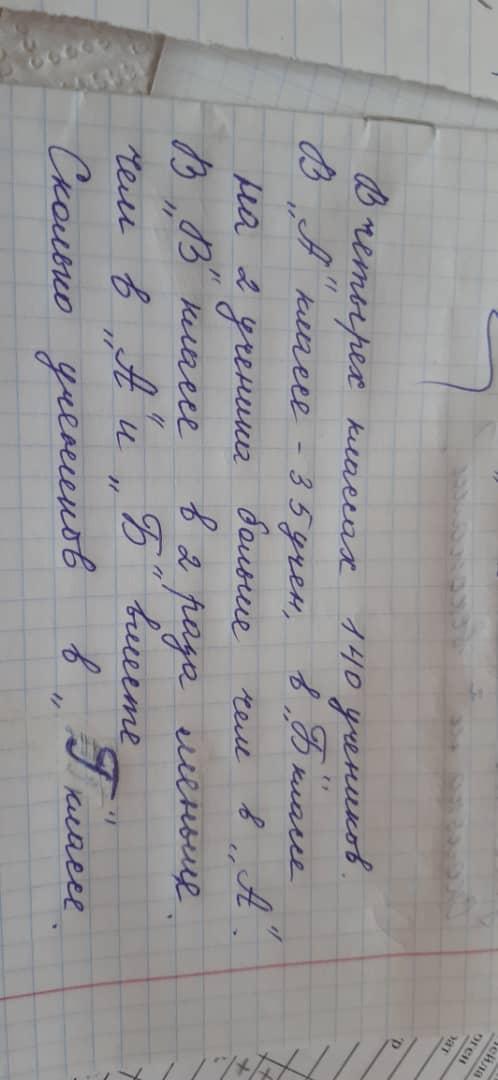 В четырех классах 140 учеников.
В „А" классе - 35 учен, в „Б" классе
на 2 ученика больше чем в „А".
В „В" классе в 2 раза меньше,
чем в „А" и „Б" вместе.
Сколько учеников в „Г" классе.